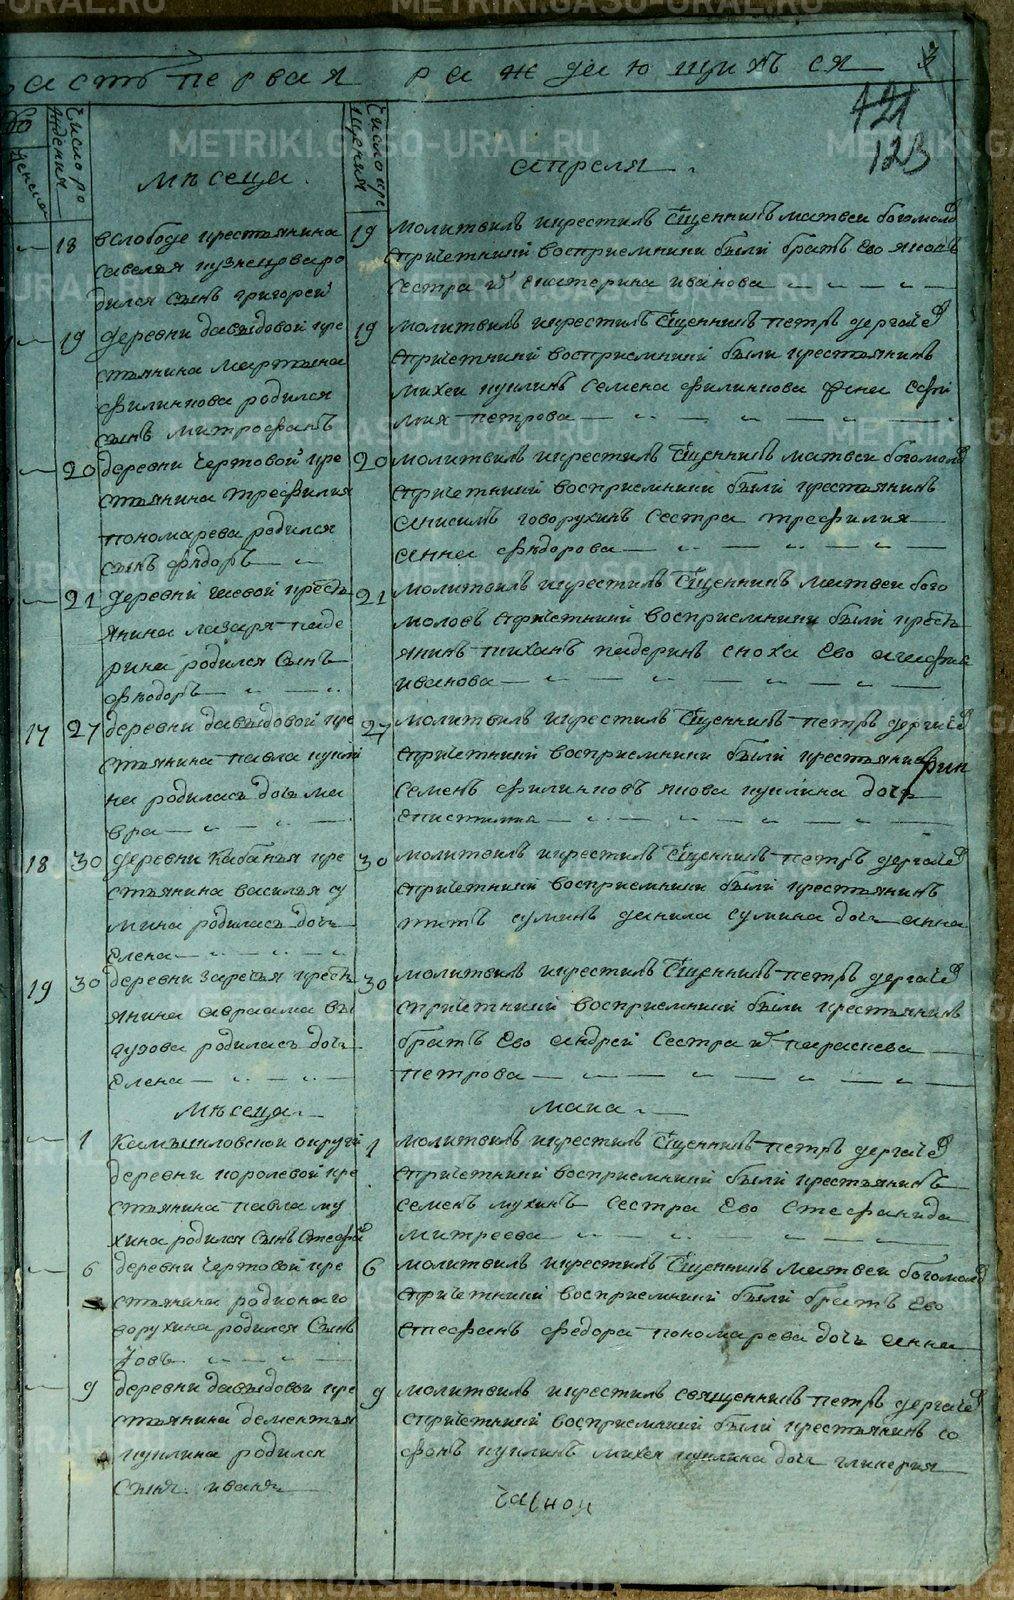 асть первая раждающихъся 3
421
123
Число ро
ждения
Число кре
щения
женска
Мѣсеца.
апреля.
18
вслободе крестьянина
савелья кузнецова ро
дился сынъ григорей
19
молитвилъ икрестилъ Сщенникъ матвеи богомоло
спричетники восприемники были братъ Ево яковъ
сестра Екатерина иванова
19
деревни давыдовой кре
стьянина мартына
филипова родился
сынъ митрофанъ
19
молитвилъ икрестилъ Сщенникъ петръ дергаче
спричетники восприемники были крестьянинъ
михеи куклинъ семена филипова
мия петрова
20
деревни чертовой кре
стьянина трефилия
пономарева родился
сынъ федоръ
20
молитвилъ икрестилъ Сщенникъ матвеи богомоло
спричетники восприемники были крестьянинъ
анисимъ говорухинъ сестра трефилия
анна федорова
21
деревни крестъ
янина лазаря паде
рина родился сынъ
федоръ
21
молитвилъ икрестилъ Сщенникъ матвеи бого
моловъ спричетники восприемники были кресть
янинъ тиханъ падеринъ сноха Ево
иванова
17
27
деревни давыдовой кре
стьянина павла кукли
на родиласъ дочь ма
вра
27
молитвилъ икрестилъ Сщенникъ петръ дергаче
спричетники восприемники были крестьянинъ
семенъ филиповъ якова куклина дочь
епистимия
18
30
деревни Кабанья кре
стьянина василья су
мина родиласъ дочь
Елена
30
молитвилъ икрестилъ Сщенникъ петръ дергаче
спричетники восприемники были крестьянинъ
титъ суминъ данила сумина дочь анна
19
30
деревни заречья кресть
янина авраама вы
гузова родиласъ дочь
Елена
30
молитвилъ икрестилъ Сщенникъ петръ дергаче
спричетники восприемники были крестьянинъ
братъ Ево андрей Сестра параскева
петрова
Мѣсеца
маиа
1
Камышловской округи
деревни королевой кре
стьянина павла му
хина родился сынъ стефа
1
молитвилъ икрестилъ Сщенникъ петръ дергаче
спричетники восприемники были крестьянинъ
семенъ мухинъ сестра Ево стефанида
митреева
6
деревни чертовой кре
стьянина родиона го
ворухина родился сынъ
Iовъ
6
молитвилъ икрестилъ Сщенникъ матвеи богомоло
спричетники восприемники были братъ Ево
стефанъ федора пономарева дочь анна
9
деревни давыдовой кре
стьянина дементья
куклина родился
сынъ иванъ
9
молитвилъ икрестилъ священникъ петръ дергаче
спричетники восприемники были крестьянинъ со
фонъ куклинъ михея куклина дочь гликерия
METRIKI.GASO-URAL.RU